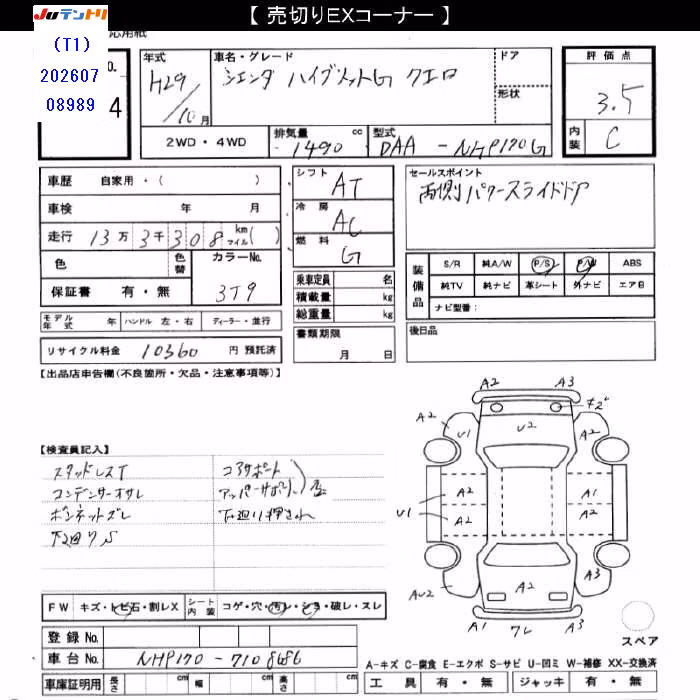 【 売切りEXコーナー 】
JUテントリ
(T1)
202607
08989
応用紙
o.
4
年式 H29/10月
車名・グレード シエンタ ハイブリットG クエロ
ドア
形状
評価点 3.5
内装 C
2WD・4WD
排気量 1490 cc
型式 DAA-NHP170G
車歴 自家用・( )
車検 年 月
走行 13万3千308 km マイル( )
色 色替 カラーNo. 3T9
保証書 有・無
モデル年式 年 ハンドル 左・右 ディーラー・並行
リサイクル料金 10360 円 預託済
シフト AT
冷房 AC
燃料 G
乗車定員 名
積載量 kg
総重量 kg
書類期限 月 日
セールスポイント
両側パワースライドドア
装備品 S/R 純A/W P/S P/W ABS
純TV 純ナビ 革シート 外ナビ エアB
ナビ型番:
後日品
【出品店申告欄(不良箇所・欠品・注意事項等)】
【検査員記入】
スタッドレスT コアサポート
コンデンサーオサレ アッパーサポート
ボンネットズレ 下廻り押され
下廻りS
FW キズ・トビ石・割レX シート内装 コゲ・穴・汚レ・シミ・破レ・スレ
登録No.
車台No. NHP170-7108686
車庫証明用 長さ cm 幅 cm 高さ cm
A2 A3
A2 U1 U2 キズ A2
A2 A1
U1 A2 A2
AU2 A2 A3
A1 ワレ A3
スペア
A-キズ C-腐食 E-エクボ S-サビ U-凹ミ W-補修 XX-交換済
工具 有・無 ジャッキ 有・無